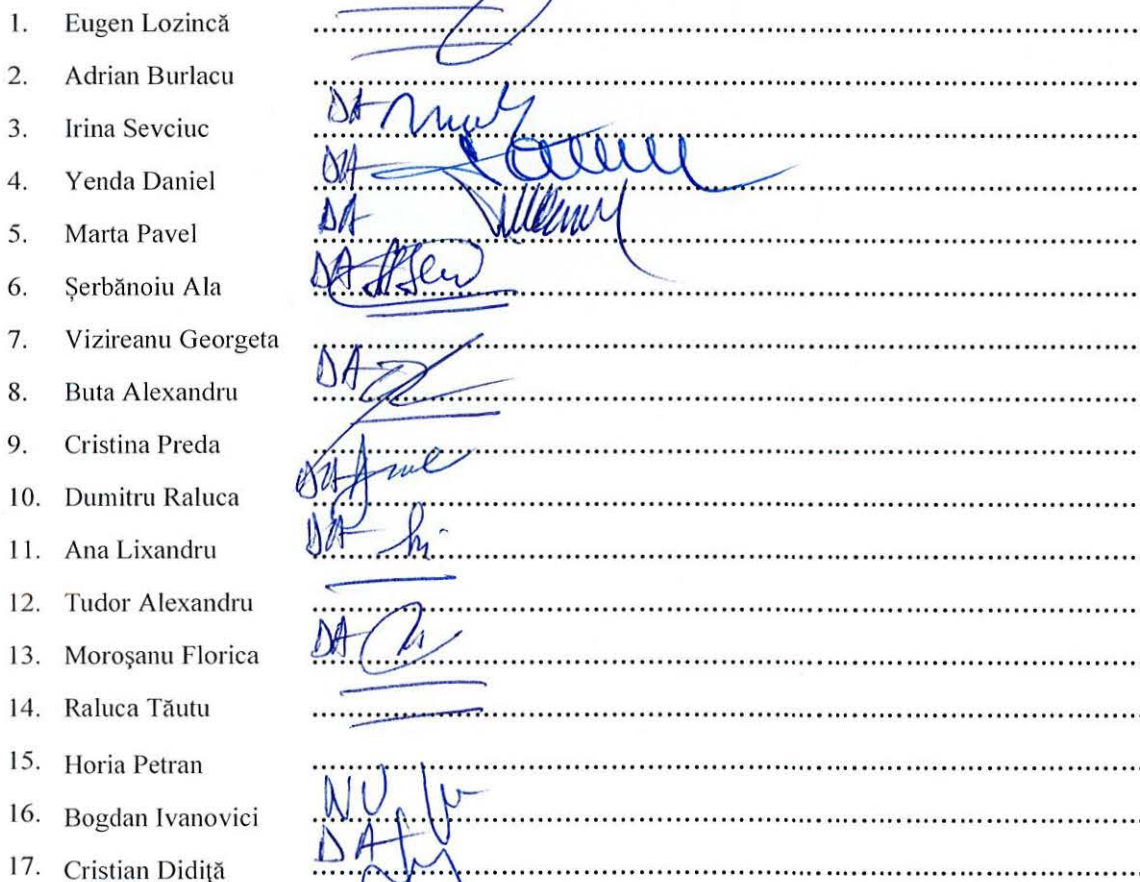 1. Eugen Lozincă
2. Adrian Burlacu
3. Irina Sevciuc DA
4. Yenda Daniel DA
5. Marta Pavel DA
6. Șerbănoiu Ala DA
7. Vizireanu Georgeta
8. Buta Alexandru DA
9. Cristina Preda
10. Dumitru Raluca DA
11. Ana Lixandru DA
12. Tudor Alexandru
13. Moroşanu Florica DA
14. Raluca Tăutu
15. Horia Petran
16. Bogdan Ivanovici NU
17. Cristian Didiţă DA